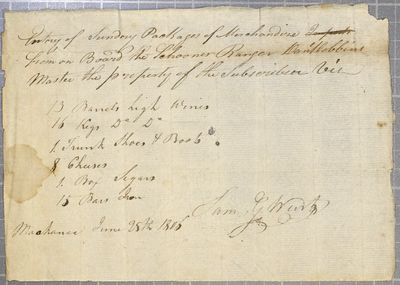 Entry of Sundry Packages of Merchandise
from on Board the Schooner Ranger
Master the property of the Subscriber Viz
13 Barrels high Wines
16 Kegs Do Do
1 Trunk Shoes & Boots
8 Cheeses
1 Box Segars
15 Bars Iron
Sam. G
Mackanac June 28th